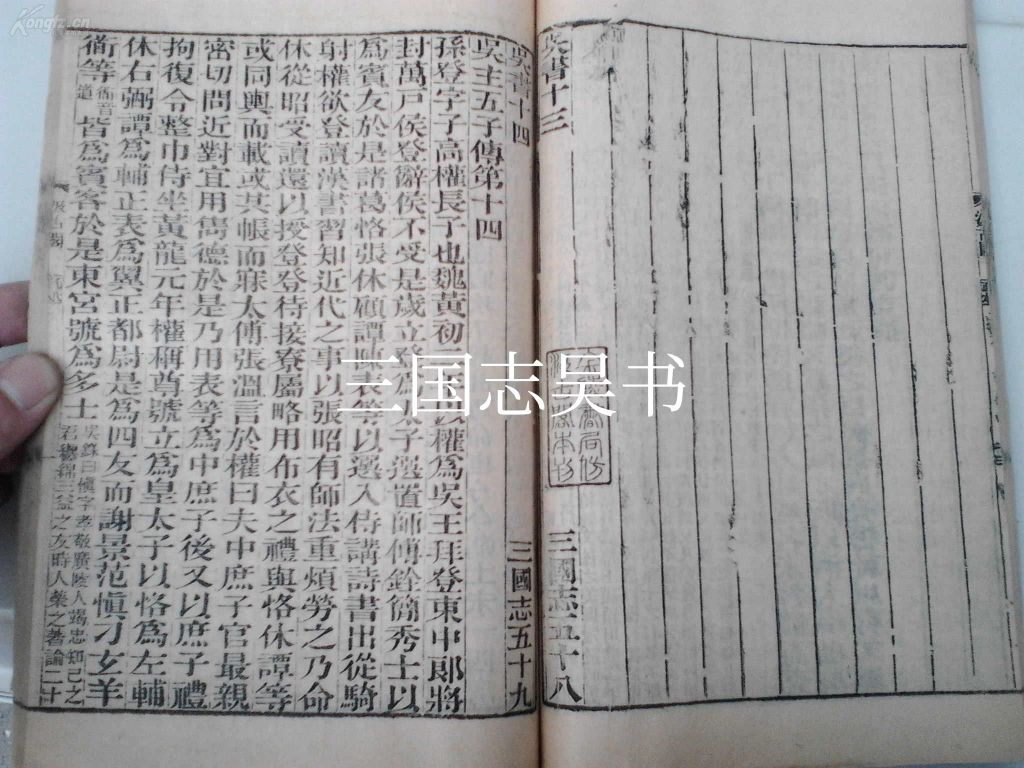 吳書十三
三國志五十八
吳書十四
三國志五十九
吳主五子傳第十四
孫登字子高權長子也魏黃初二年以權爲吳王拜登東中郎將
封萬戶侯登辭侯不受是歲立登爲太子選置師傅銓簡秀士以
爲賓友於是諸葛恪張休顧譚陳表等以選入侍講詩書出從騎
射權欲登讀漢書習知近代之事以張昭有師法重煩勞之乃命
休從昭受讀還以授登登待接寮屬略用布衣之禮與恪休譚等
或同輿而載或共帳而寐太傅張溫言於權曰夫中庶子官最親
密切問近對宜用雋德於是乃用表等爲中庶子後又以庶子禮
拘復令整巾侍坐黃龍元年權稱尊號立爲皇太子以恪爲左輔
休右弼譚爲輔正表爲翼正都尉是爲四友而謝景范愼刁玄羊
衜等衜音道皆爲賓客於是東宮號爲多士吳錄曰愼字孝敬廣陵人竭忠知己之君纏綿三益之友時人榮之著論二十
三国志吴书
Kongfz.cn